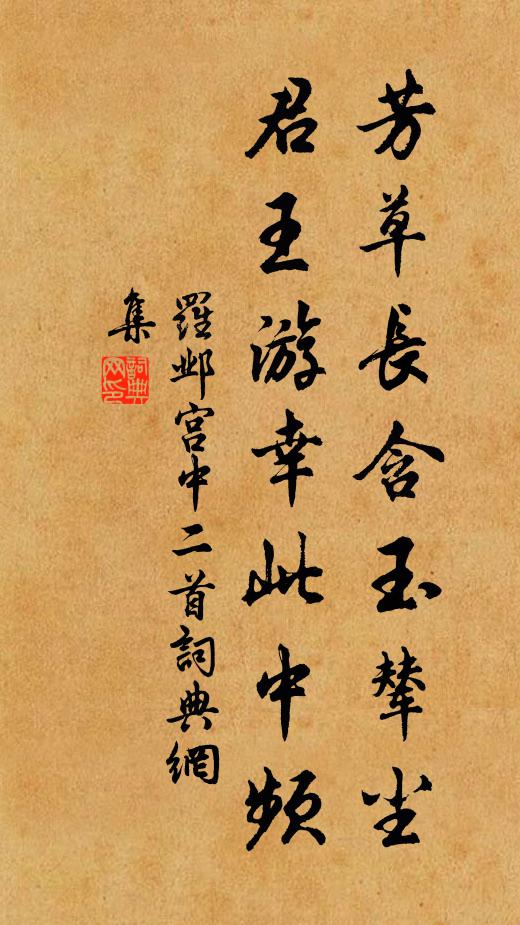 芳草長含玉輦尘
君王游幸此中頻
羅邺宫中二首詞典網
集
詞典
网印